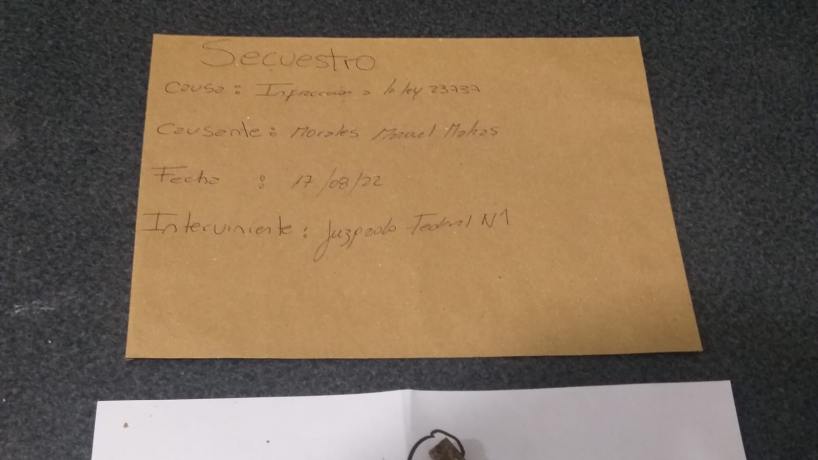 Secuestro
Causa: Infraccion a la ley 23737
Causante: Morales Manuel Matias
Fecha : 17/08/22
Interviniente: Juzgado Federal N1